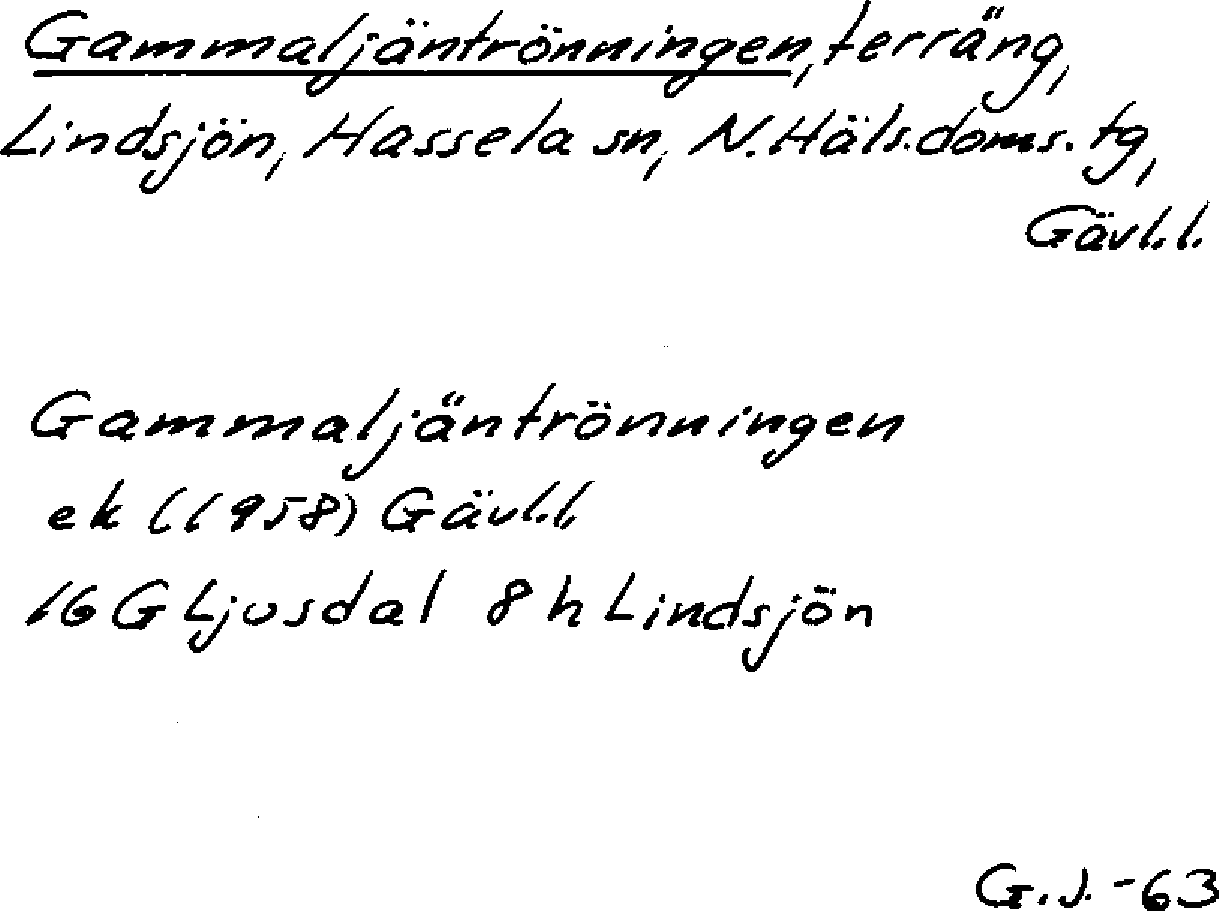 Gammaljäntrönningen, terräng,
Lindsjön, Hassela sn, N. Häls. doms. tg,
Gävl. l.
Gammaljäntrönningen
ek (1958) Gävl. l.
16 G Ljusdal 8 h Lindsjön
G. J. -63